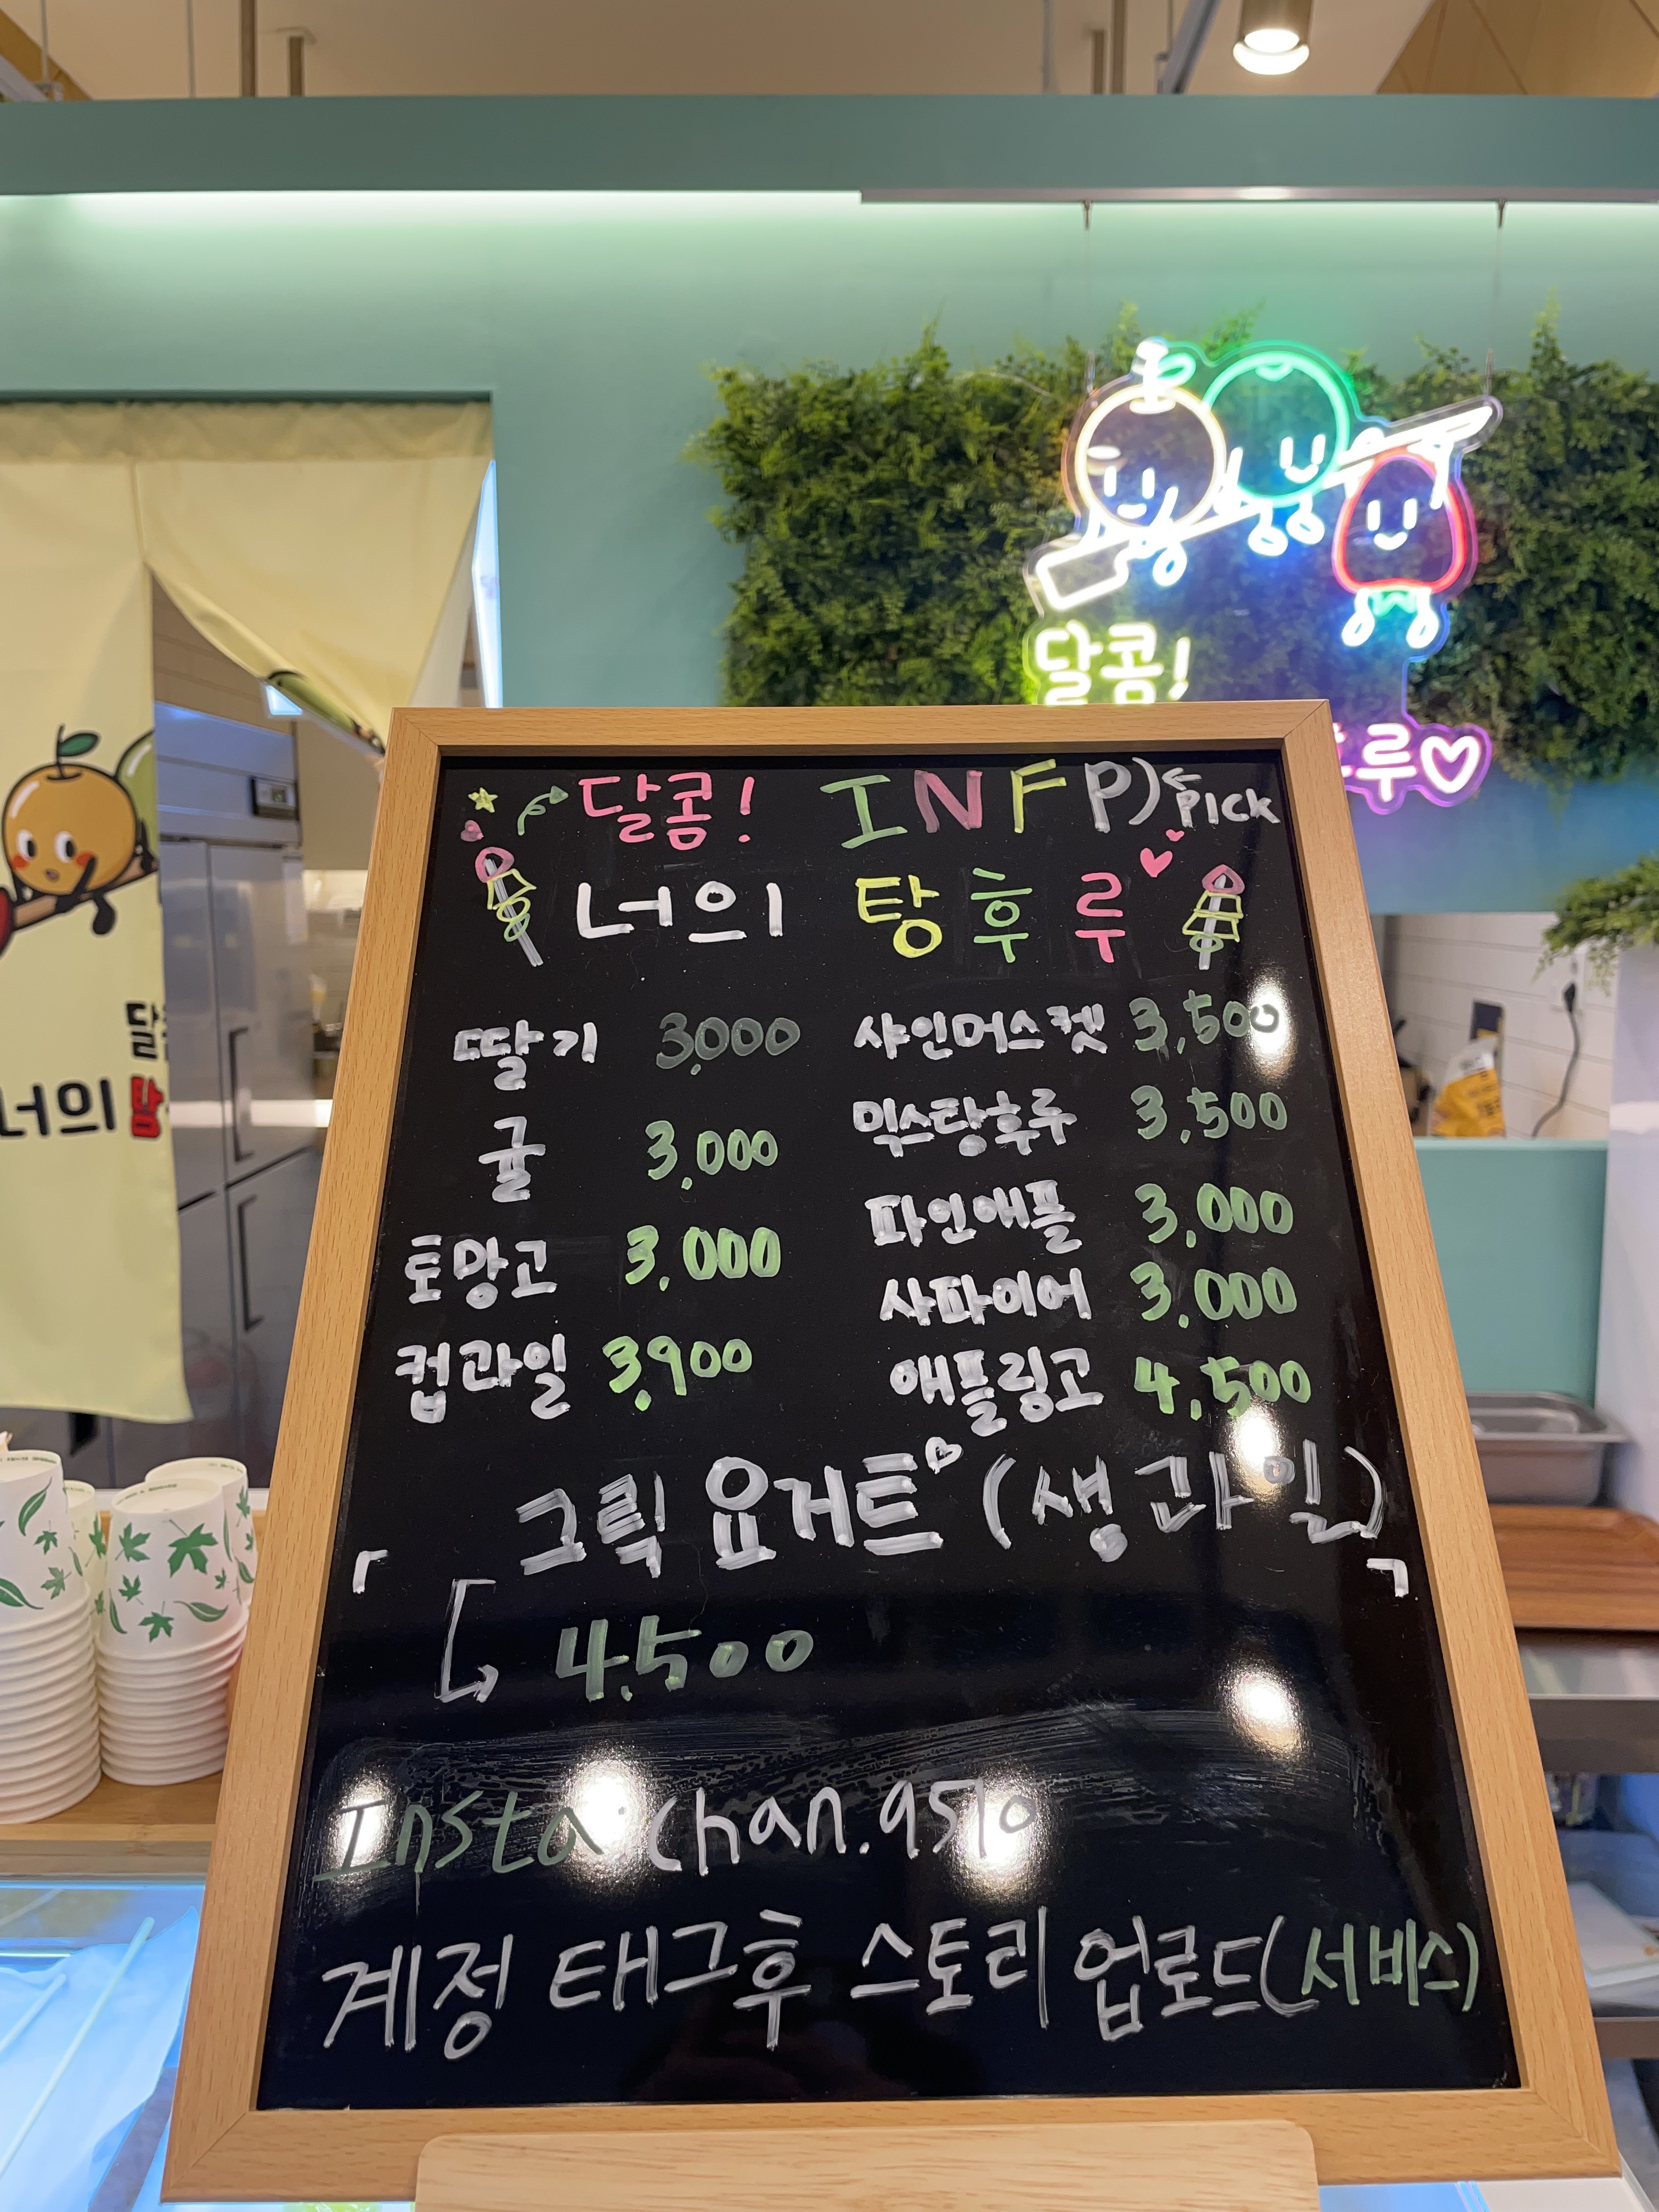 달콤!
루♡
달
너의 탕
달콤! INFP) ← PICK
너의 탕후루
딸기 3,000
귤 3,000
토망고 3,000
컵과일 3,900
샤인머스켓 3,500
믹스탕후루 3,500
파인애플 3,000
사파이어 3,000
애플링고 4,500
「 그릭 요거트♡ (생과일) 」
4.500
Insta: chan.9510
계정 태그후 스토리 업로드(서비스)